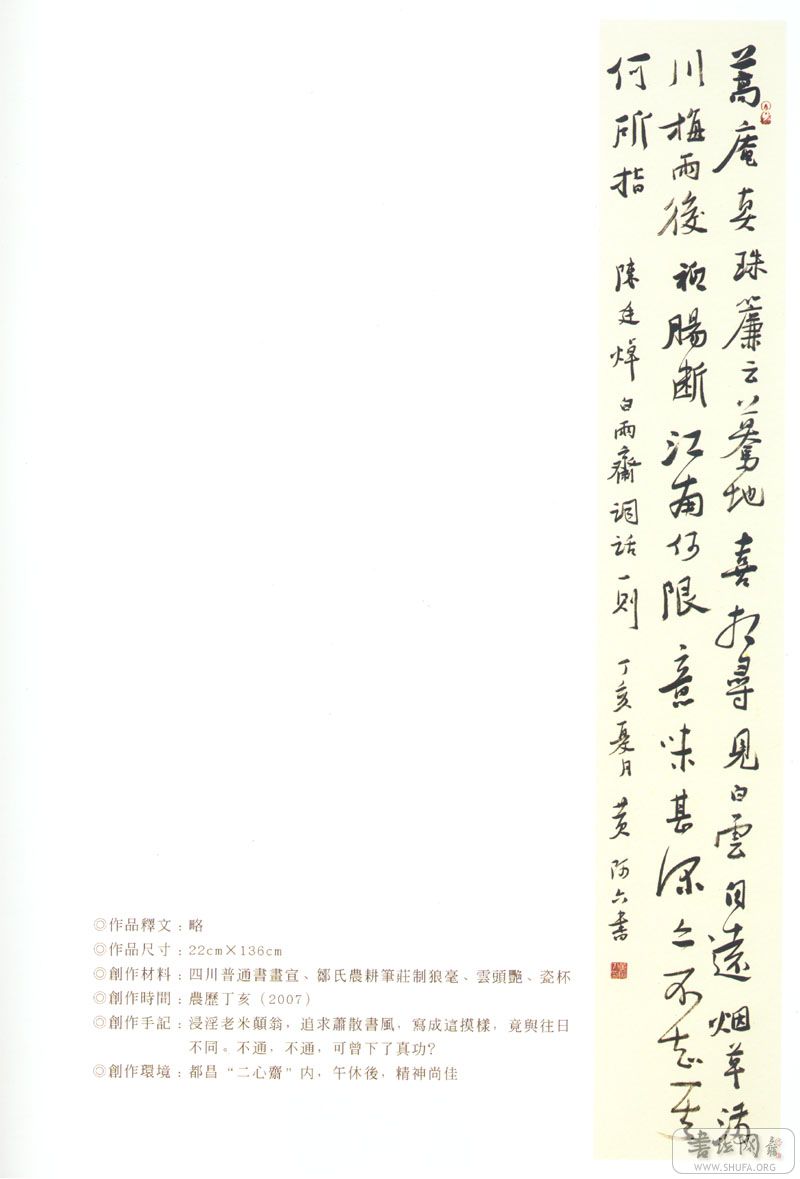 蒿庵真珠簾云驀地喜相尋見白雲自遠烟草满
川梅雨後祇腸斷江南何限意味甚深亦不知其
何所指 陳廷焯白雨齋詞話一則 丁亥夏月 黄阿六書
◎作品釋文：略
◎作品尺寸：22cm×136cm
◎創作材料：四川普通書畫宣、鄒氏農耕筆莊制狼毫、雲頭艷、瓷杯
◎創作時間：農歷丁亥（2007）
◎創作手記：浸淫老米顛翁，追求蕭散書風，寫成這摸樣，竟與往日
不同。不通，不通，可曾下了真功？
◎創作環境：都昌“二心齋”内，午休後，精神尚佳
書法网
WWW.SHUFA.ORG